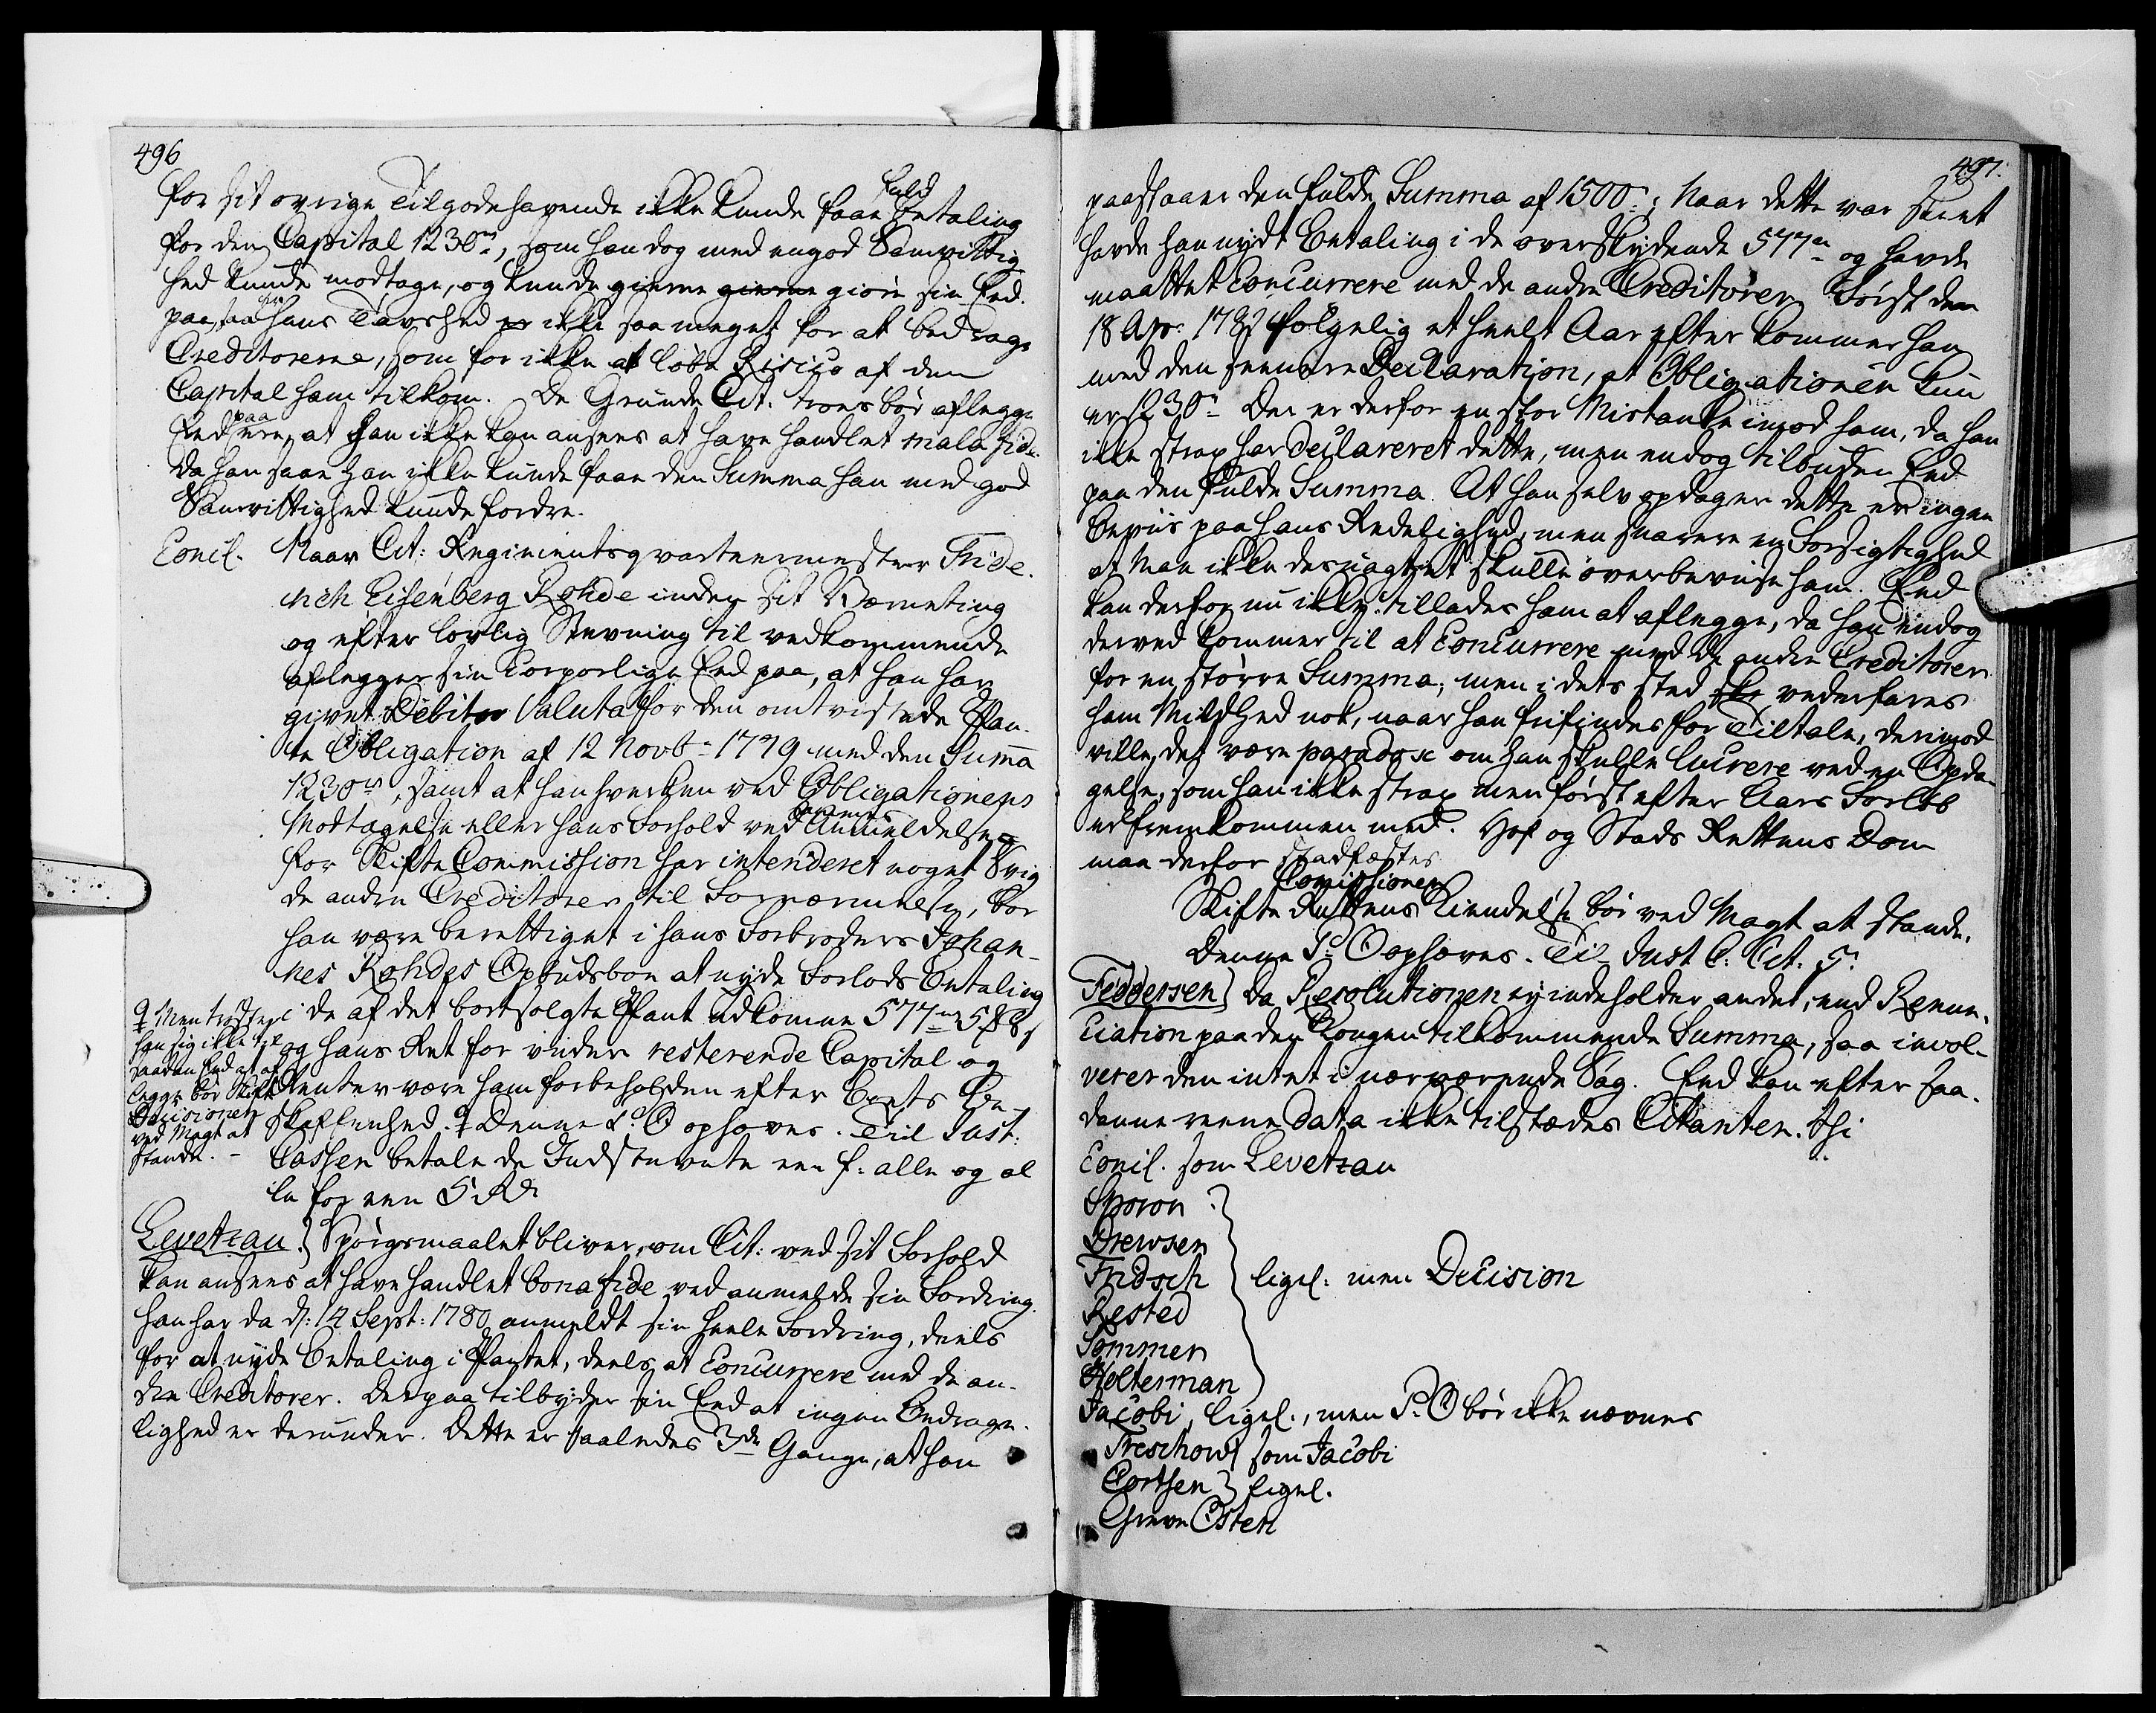 496
for sit øvrige Tilgodehavende ikke kunde faae fuld Betaling
for den Capital 1230 rd, som han dog med en god Samvittig
hed kunde modtage, og kunde gierne gierne giøre sin Eed
paa, saa hans Tavshed er ikke saa meget for at bedrage
Creditorerne, som for ikke at løbe Risico af den
Capital ham tilkom. De Grunde Cit. troer bør aflegge
Eed paa, at han ikke kan ansees at have handlet mala fide
da han saae han ikke kunde faae den Summa han med god
Samvittighed kunde fordre.
Concl. Naar Cit: Regimentsqvarteermester Fride-
rich Eisenberg Rohde inden sit Værneting
og efter lovlig Stevning til vedkommende
aflegger sin Corporlige Eed paa, at han har
givet Debitor Valuta for den omtvistede Pan-
te Obligation af 12 Novbr 1779 med den Suma
1230 rd, samt at han hverken ved Obligationens
Modtagelse eller hans Forhold ved Anmeldelsen
for Skifte Commission har intenderet noget Svig
de andre Creditorer til Fornærmelse, bør
han være berettiget i hans Forbroders Johan-
nes Rohdes Opbudsboe at nyde Forlods Betaling
i de af det bortsolgte Pant udkomne 577 rd 58 s
og hans Ret for videre resterende Capital og
Renter være ham forbeholden efter Boets Be-
skaffenhed. Denne S: O ophæves. Til Just:
Cassen betale de Indstevnte een f: alle og al
le for een 5 Rd
Men trøster
han sig ikke til
saadan Eed at af
legge bør Skifte
Decisionen
ved Magt at
stande. -
Levetzau. } Spørgsmaalet bliver, om Cit: ved sit Forhold
kan ansees at have handlet bona fide ved anmelde sin Fordring.
han har da d: 14 Sept: 1780 anmeldt sin heele Fordring, deels
for at nyde Betaling i Pantet, deels at Concurrere med de an-
dre Creditorer. Derpaa tilbyder sin Eed at ingen Bedrage-
lighed er derunder. Dette er saaledes 3de Gange, at han
497.
paastaaer den fulde Summa af 1500 rd; Naar dette var skeet
havde han nydt Betaling i de overskydende 577 rd og havde
maattet Concurrere med de andre Creditorer. Først den
18 Apr: 1782 følgelig et heelt Aar efter kommer han
med den seenere Declaration, at Obligationen kun
er 1230 rd. Der er derfor en stor Mistanke imod ham, da han
ikke strax har declareret dette, men endog tilbuden Eed
paa den fulde Summa. At han selv opdager dette er ingen
Beviis paa hans Redelighed, men snarere en Forsigtighed
at Man ikke desuagtet skulle overbeviise ham. Eed
kan derfor nu ikke tillades ham at aflegge, da han endog
derved kommer til at Concurrere med de andre Creditorer
for en større Summa; men i dets sted skee vederfares
ham Mildhed nok, naar han frifindes for Tiltale, derimod
ville det være paradox om han skulle lucrere ved en Opda-
gelse, som han ikke strax men først efter Aars Forløb
er fremkommen med. Hof og Stads Rettens Dom
maa derfor stadfæstes
Skifte Commissionens Kiendelse bør ved Magt at stande.
Denne S: O ophæves. Til Just C: Cit: 5 rd
Feddersen } Da Resolutionen ey indeholder andet, end Renun-
ciation paa den Kongen tilkommende Summa, saa invol-
verer den intet i nærværende Sag. Eed kan efter saa-
danne reene data ikke tilstædes Citanten. thi
Concl. som Levetzau
Sporon
Drewsen
Fridsch } ligel: men Decision
Rested
Sommer
Holterman
Jacobi, ligel., men S: O bør ikke nævnes
Treschow } som Jacobi
Cortsen } ligel.
Greve Osten